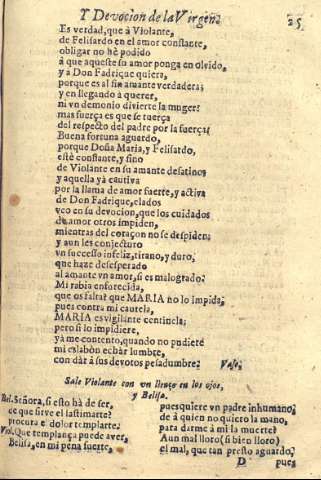 Y Devocion de la Virgen. 25
Es verdad, que à Violante,
de Felisardo en el amor constante,
obligar no hè podido
à que aqueste su amor ponga en olvido,
y a Don Fadrique quiera,
porque es al fin amante verdadera;
y en llegando à querer,
ni vn demonio divierte la muger:
mas fuerça es que se tuerça
del respecto del padre por la fuerça:
Buena fortuna aguardo,
porque Doña Maria, y Felisardo,
estè constante, y fino
de Violante en su amante desatino;
y aquella yà cautiva
por la llama de amor fuerte, y activa
de Don Fadrique, elados
veo en su devocion, que los cuidados
de amor otros impiden,
mientras del coraçon no se despiden;
y aun les conjecturo
vn successo infeliz, tirano, y duro,
que haze desesperado
al amante vn amor, si es malogrado:
Mi rabia enforecida,
que os saltar que MARIA no lo impida,
pues contra mi cautela,
MARIA es vigilante centinela;
pero si lo impidiere,
yà me contento, quando no pudiere
mi eslabòn echar lumbre,
con dàr à sus devotos pesadumbre. Vase.
Sale Violante con vn lienço en los ojos,
y Belisa.
Bel. Señora, si esto hà de ser,
de que sirve el lastimarte?
procura el dolor templarte.
Viol. Que templança puede aver,
Belisa, en mi pena fuerte,
pues quiere vn padre inhumano,
de à quien no quiero la mano,
para darme à mi la muerte?
Aun mal lloro (si bien lloro)
el mal, que tan presto aguardo,
D pues